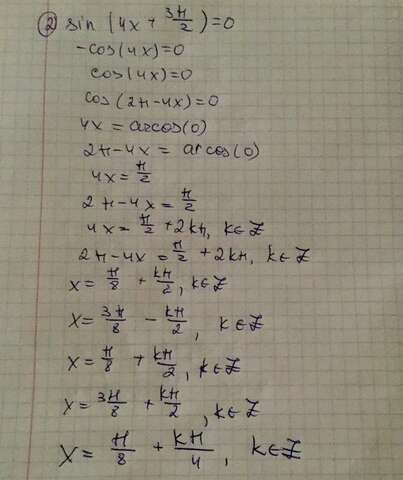 ② sin (4x + 3π/2) = 0
-cos(4x) = 0
cos(4x) = 0
cos(2π-4x) = 0
4x = arcos(0)
2π-4x = arcos(0)
4x = π/2
2π-4x = π/2
4x = π/2 + 2kπ, k∈Z
2π-4x = π/2 + 2kπ, k∈Z
x = π/8 + kπ/2, k∈Z
x = 3π/8 - kπ/2, k∈Z
x = π/8 + kπ/2, k∈Z
x = 3π/8 + kπ/2, k∈Z
x = π/8 + kπ/4, k∈Z